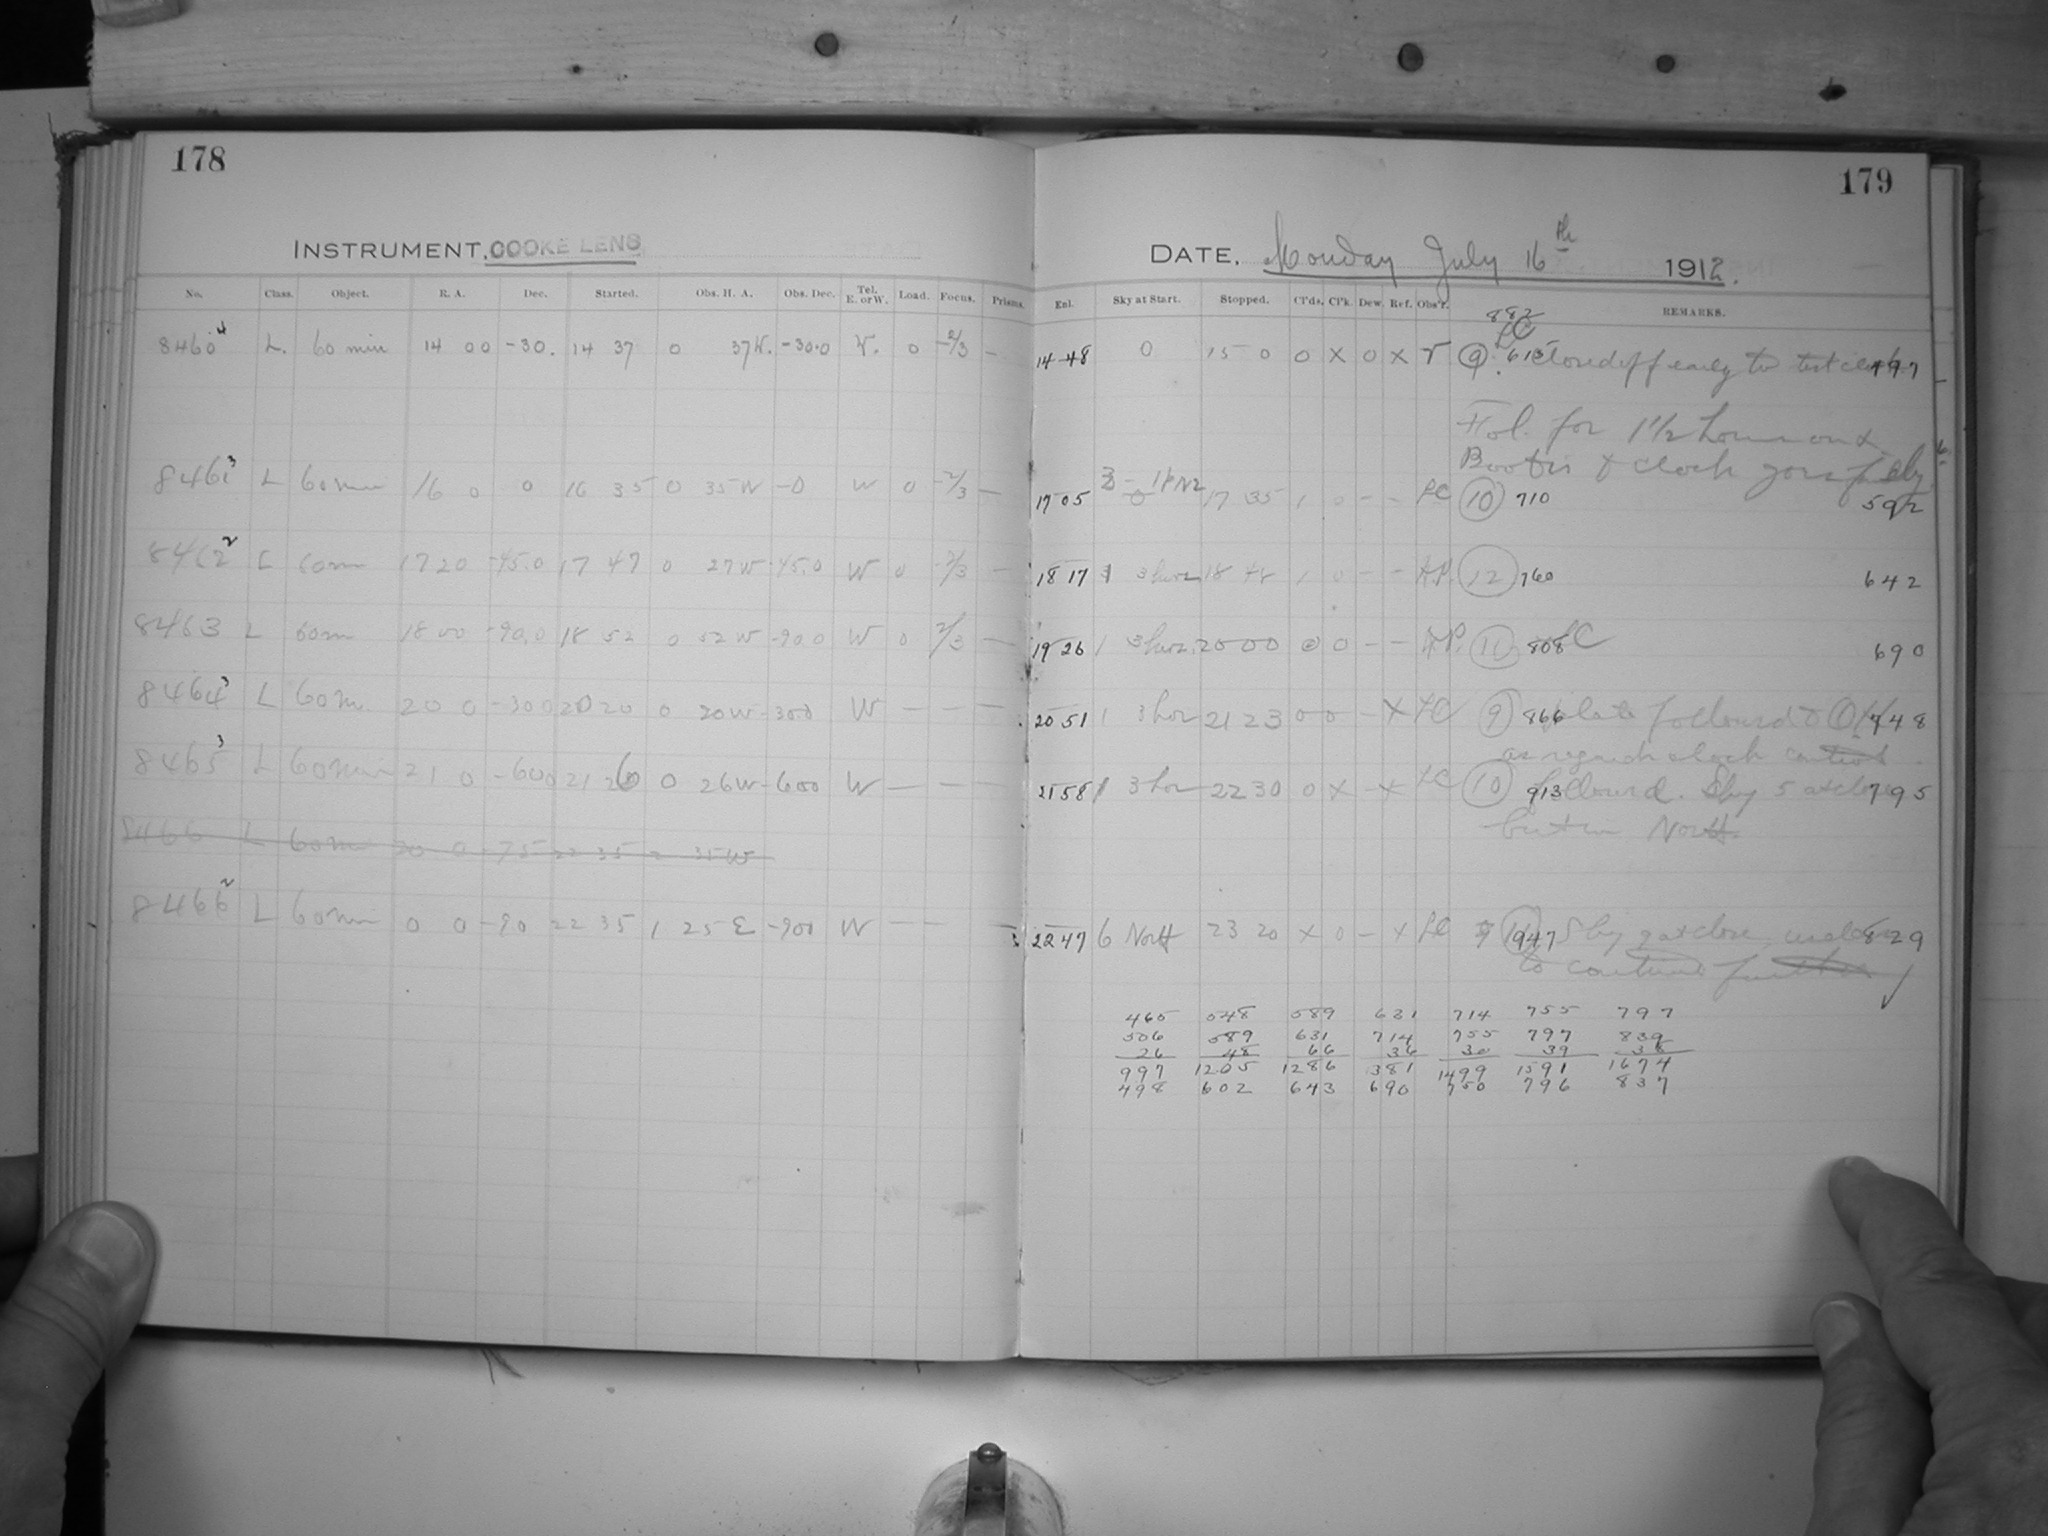 178
179
INSTRUMENT. COOKE LENS
DATE. Monday July 16th 1912.
No. Class. Object. R. A. Dec. Started. Obs. H. A. Obs. Dec. Tel. E. or W. Load. Focus. Prisms. Exl. Sky at Start. Stopped. Cl'ds. Cl'k. Dew. Ref. Obs'r. REMARKS.
882
8460 4 L. 60 min 14 00 -30. 14 37 0 37 W. -30.0 W. 0 -2/3 - 14 48 0 15 0 0 X 0 X T 9 615 Closed off early to test clock
Fol. for 1½ hours on α
Bootis & clock goes
8461 3 L 60 min 16 0 0 16 35 0 35 W -0 W 0 -2/3 - 17 05 17 35 1 0 - - LC 10 710 592
8462 2 L 60m 17 20 -45.0 17 47 0 27 W -45.0 W 0 -2/3 - 18 17 18 48 1 0 - - 12 760 642
8463 L 60m 18 00 -90.0 18 52 0 52 W -90.0 W 0 2/3 - 19 26 1 20 00 0 0 - - 11 808 690
8464 3 L 60m. 20 0 -300 20 20 0 20 W -300 W - - - 20 51 1 3 hor 21 23 0 0 - X LC 9 866 plate followed & 748
as regards clock control
8465 3 L 60 min 21 0 -600 21 26 0 26 W -600 W - - - 21 58 1 3 hor 22 30 0 X - X LC 10 913 followed. Sky 5 at close 795
but in North
8466 L 60m 20 0 -75 22 35 2 35 W
8466 2 L 60 min 0 0 -90 22 35 1 25 E -900 W - - - 22 47 6 North 23 20 X 0 - X LC 947 Sky at close useless 829
to continue further
465 548 589 631 714 755 797
506 589 631 714 755 797 839
26 48 66 36 30 39 38
997 1205 1286 381 1499 1591 1674
498 602 643 690 750 796 837